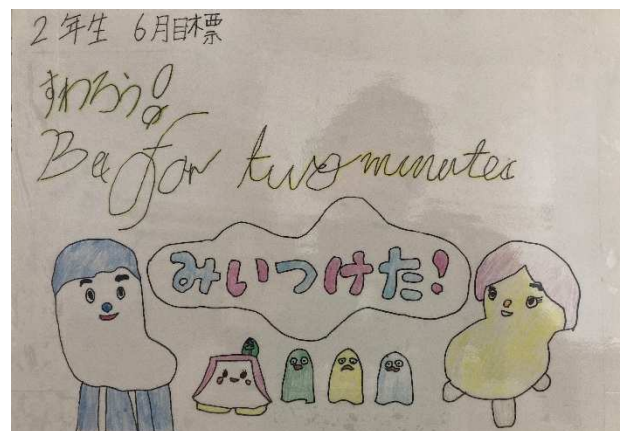 2年生 6月目標
すわろう!
Be for two minutes
みいつけた!